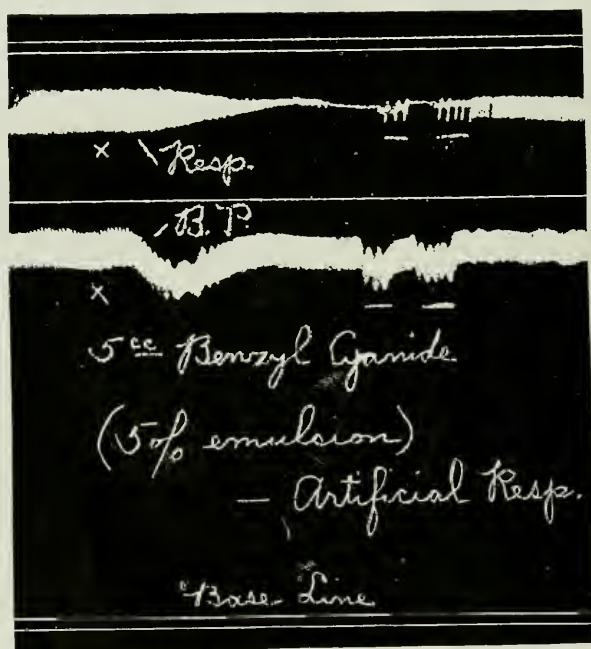 x
Resp.
B.P.
x
5 cc Benzyl Cyanide
(5% emulsion)
— Artificial Resp.
Base Line